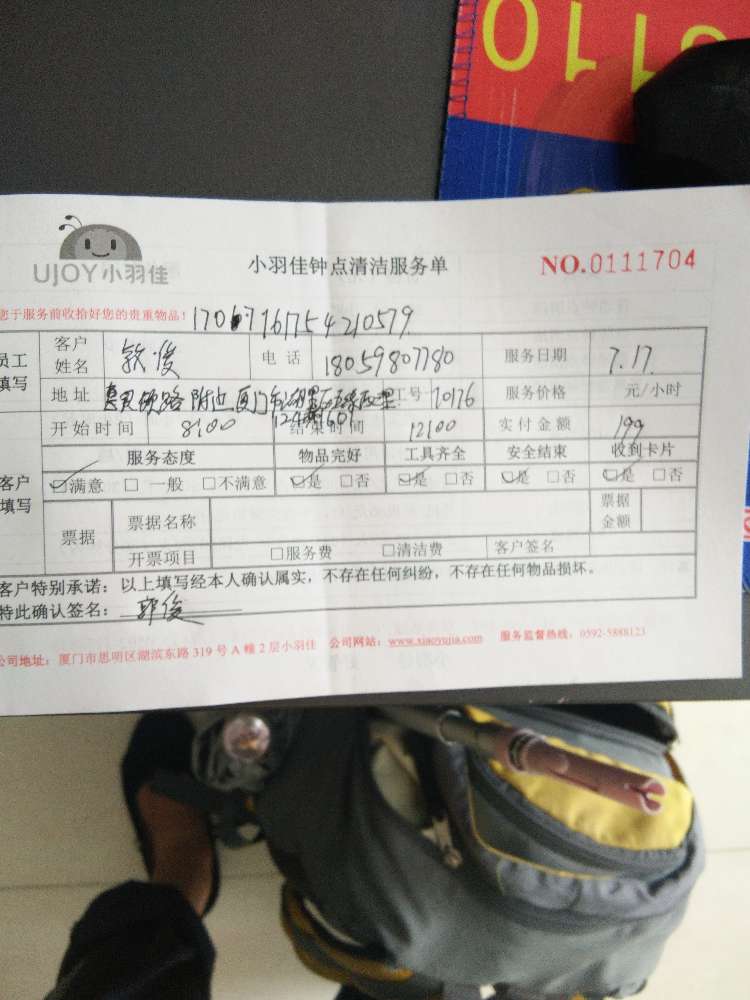 0110
UJOY小羽佳
小羽佳钟点清洁服务单
NO.0111704
您于服务前收拾好您的贵重物品!
员工填写
客户姓名
电话 18059807780
服务日期 7.17
地址
工号 70176
服务价格 元/小时
开始时间 8:00
结束时间 12:00
实付金额 199
客户填写
服务态度 物品完好 工具齐全 安全结束 收到卡片
☑满意 □一般 □不满意 ☑是 □否 ☑是 □否 ☑是 □否 ☑是 □否
票据 票据名称 票据金额
开票项目 □服务费 □清洁费 客户签名
客户特别承诺:以上填写经本人确认属实,不存在任何纠纷,不存在任何物品损坏。
特此确认签名:
公司地址:厦门市思明区湖滨东路319号A幢2层小羽佳 公司网站:www.xiaoyujia.com 服务监督热线:0592-5888123